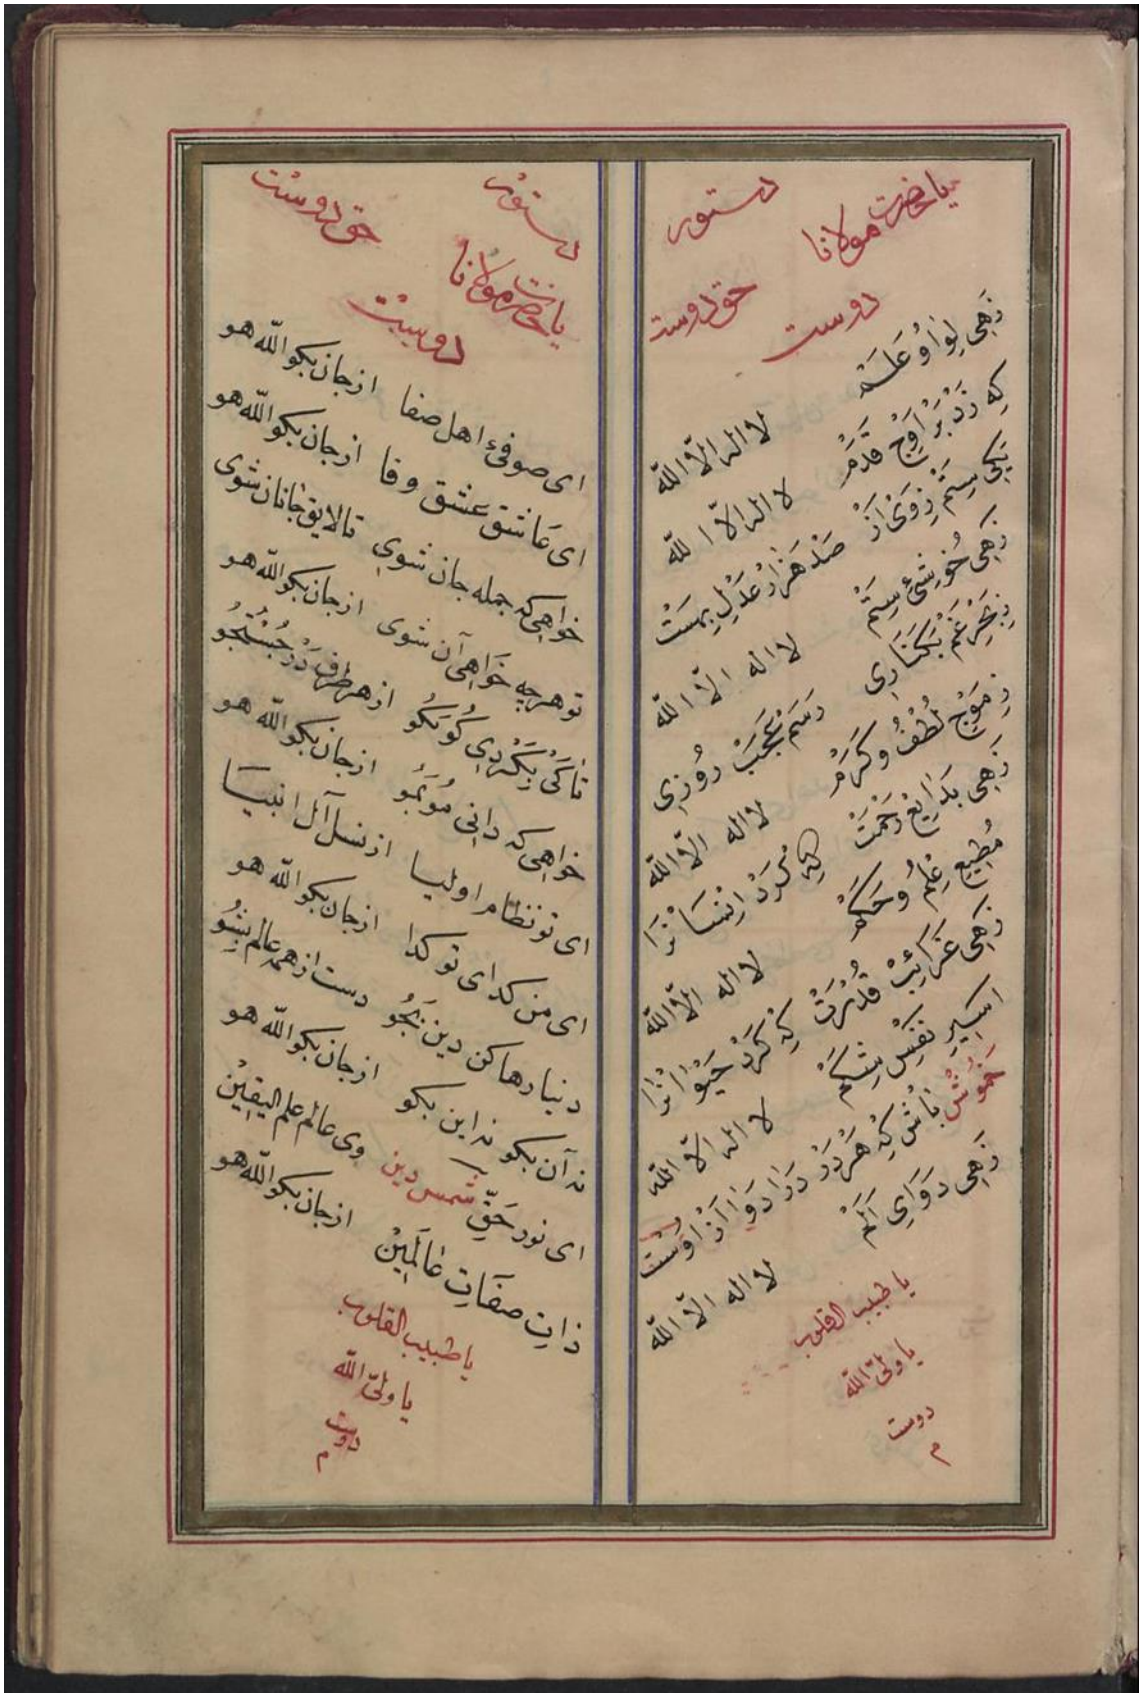 يا حضرت مولانا
دستور
دوست
حق دوست
زهى لوا و علم لا اله الا الله
كه زد بر اوج قدم لا اله الا الله
يكى ستم ز وى از صد هزار عدل بهست
زهى خوشئ ستم لا اله الا الله
ز بحر غم بكنارى رسم عجب روزى
ز موج لطف و كرم لا اله الا الله
زهى بدايع رحمت كه كرد انسانرا
مطيع علم و حكم لا اله الا الله
زهى غرائب قدرت كه كرد حيوانرا
اسير نفس شكم لا اله الا الله
خموش باش كه هر درد را دوا از اوست
زهى دواى الم لا اله الا الله
يا طبيب القلوب
يا ولىّ الله
دوست
م
دستور
حق دوست
يا حضرت مولانا
دوست
اى صوفىء اهل صفا از جان بكو الله هو
اى عاشق عشق وفا از جان بكو الله هو
خواهى كه جمله جان شوى تا لايق جانان شوى
تو هرچه خواهى آن شوى از جان بكو الله هو
تاكى بكردى كو بكو از هر طرف در جستجو
خواهى كه دانى مو بمو از جان بكو الله هو
اى تو نظام اوليا از نسل آل انبيا
اى من كداى تو كدا از جان بكو الله هو
دنيا رها كن دين بجو دست از همه عالم بشو
نه آن بكو نه اين بكو از جان بكو الله هو
اى نور حقّ شمس دين وى عالم علم اليقين
ذات صفات عالمين از جان بكو الله هو
يا طبيب القلوب
يا ولىّ الله
دوست
م